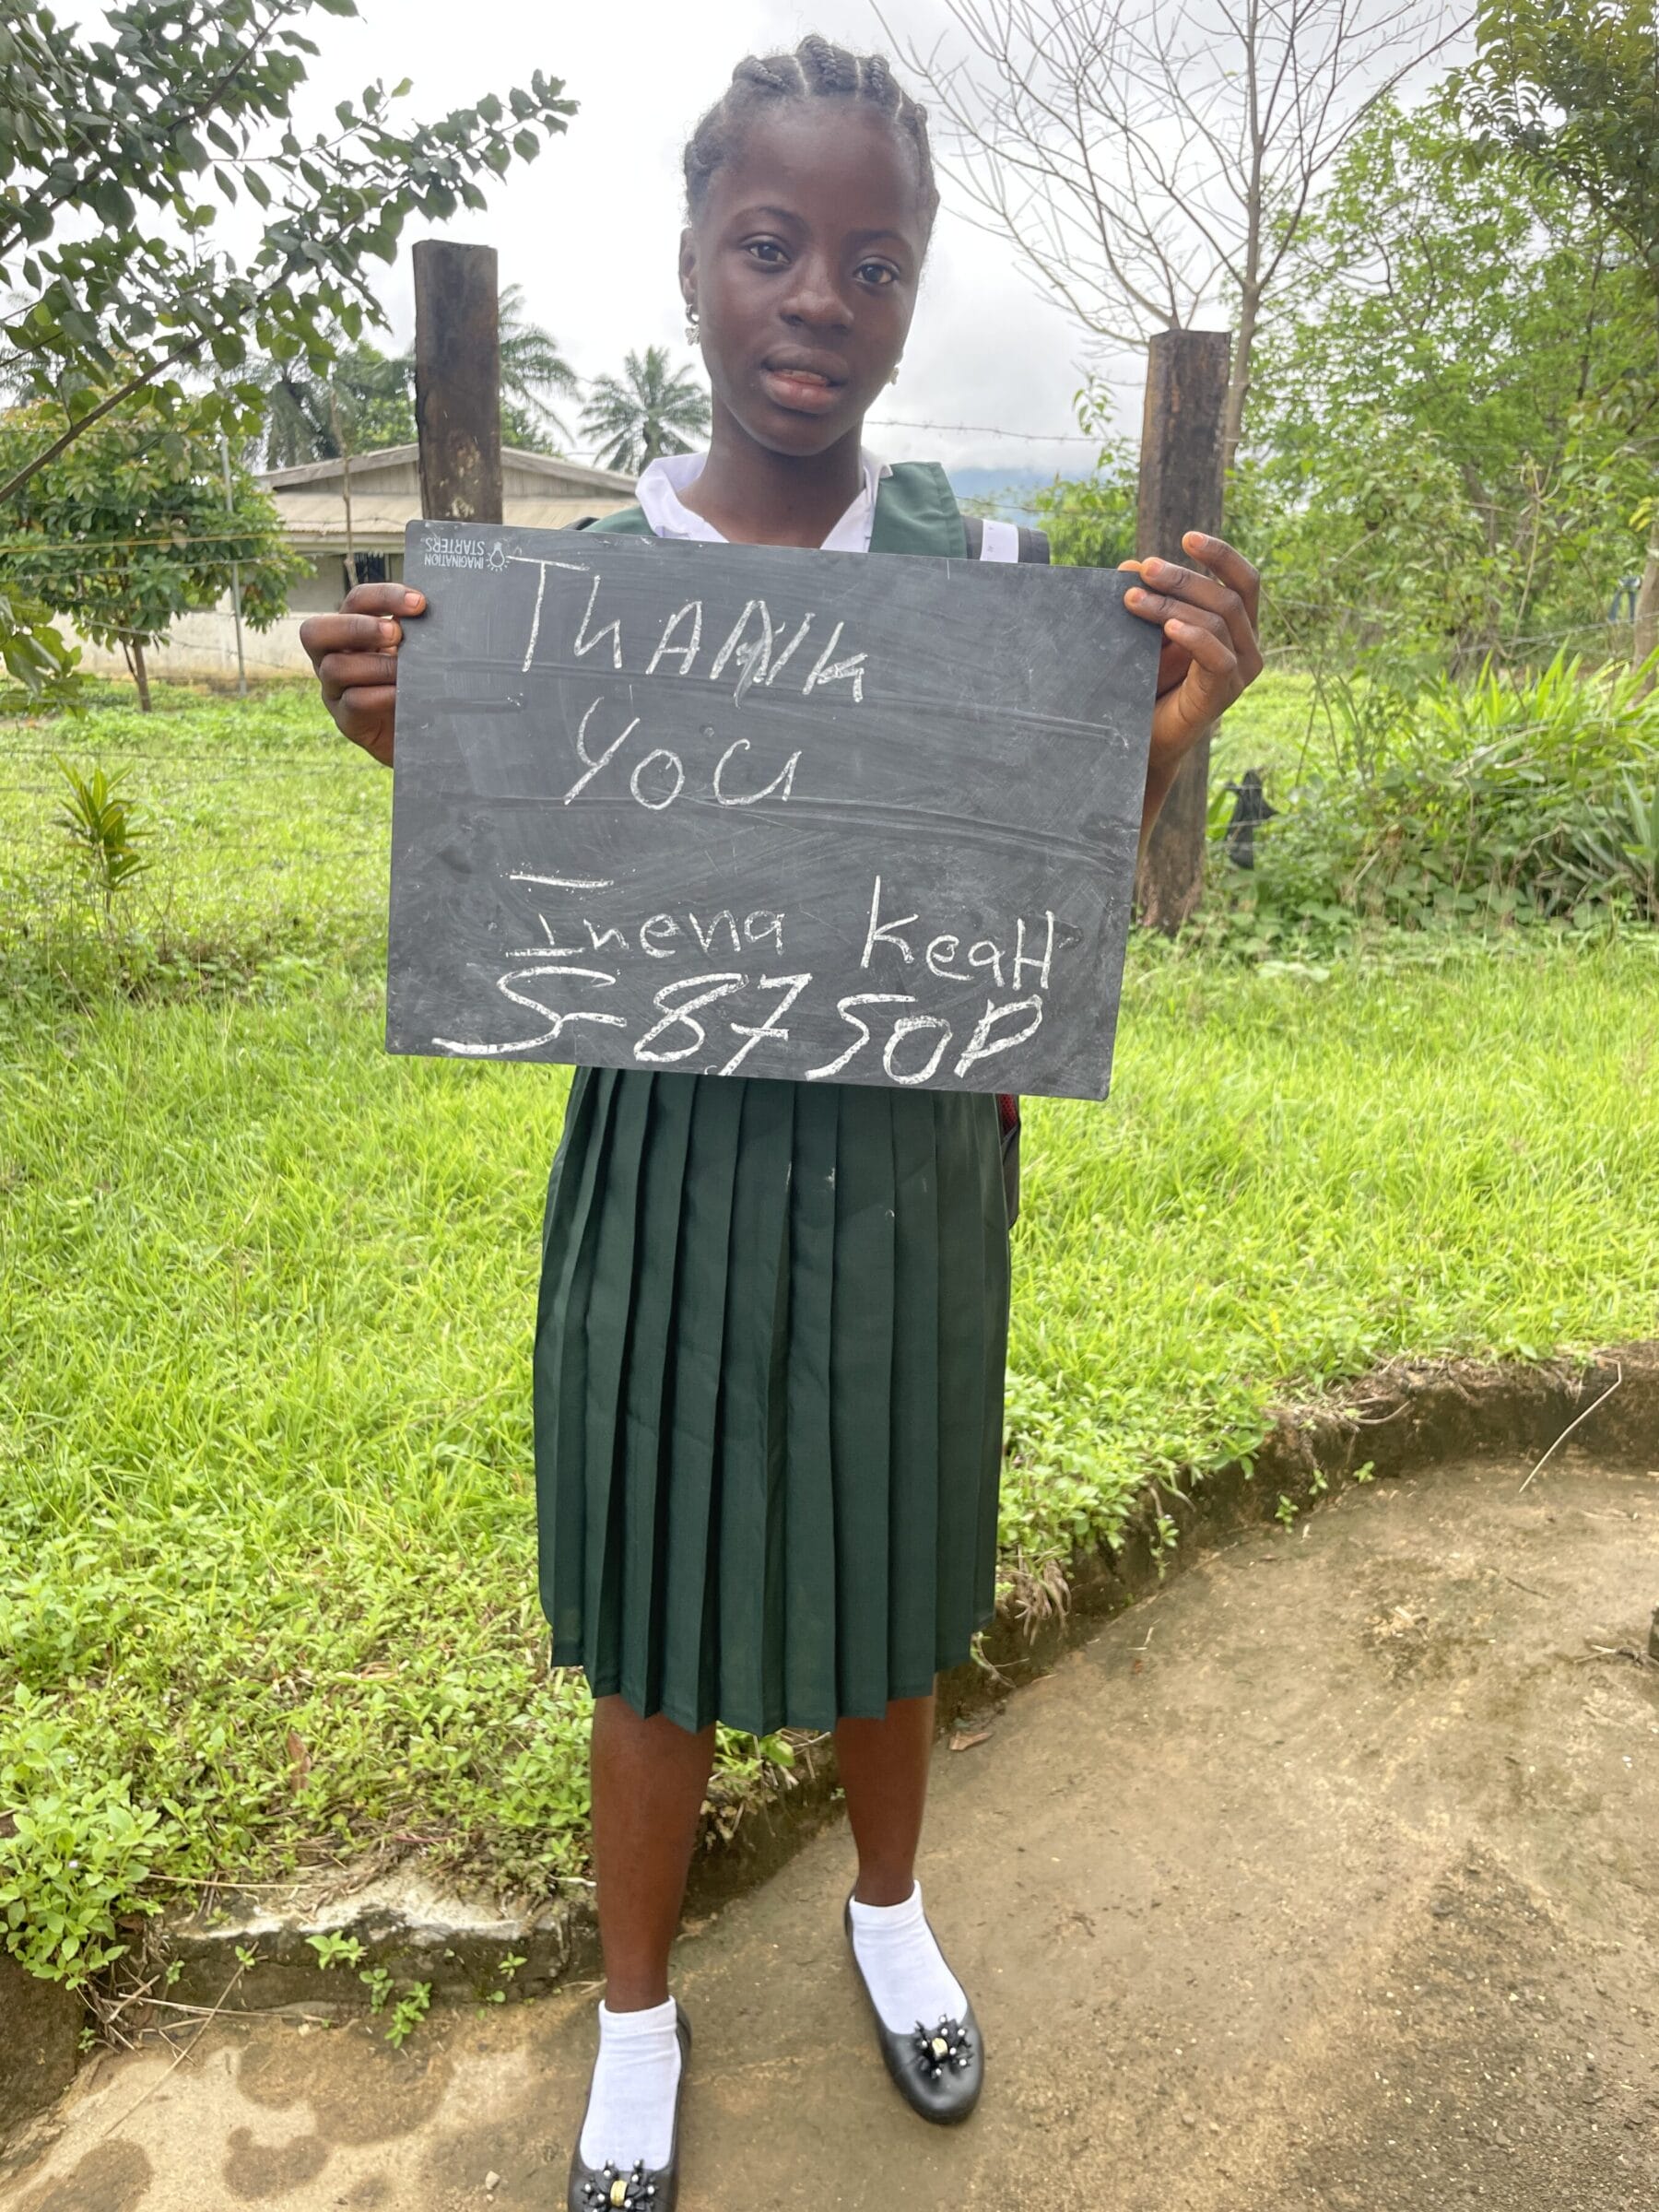 IMAGINATION
STARTERS
THANK
YOU
Inena KeaH
S-8750P